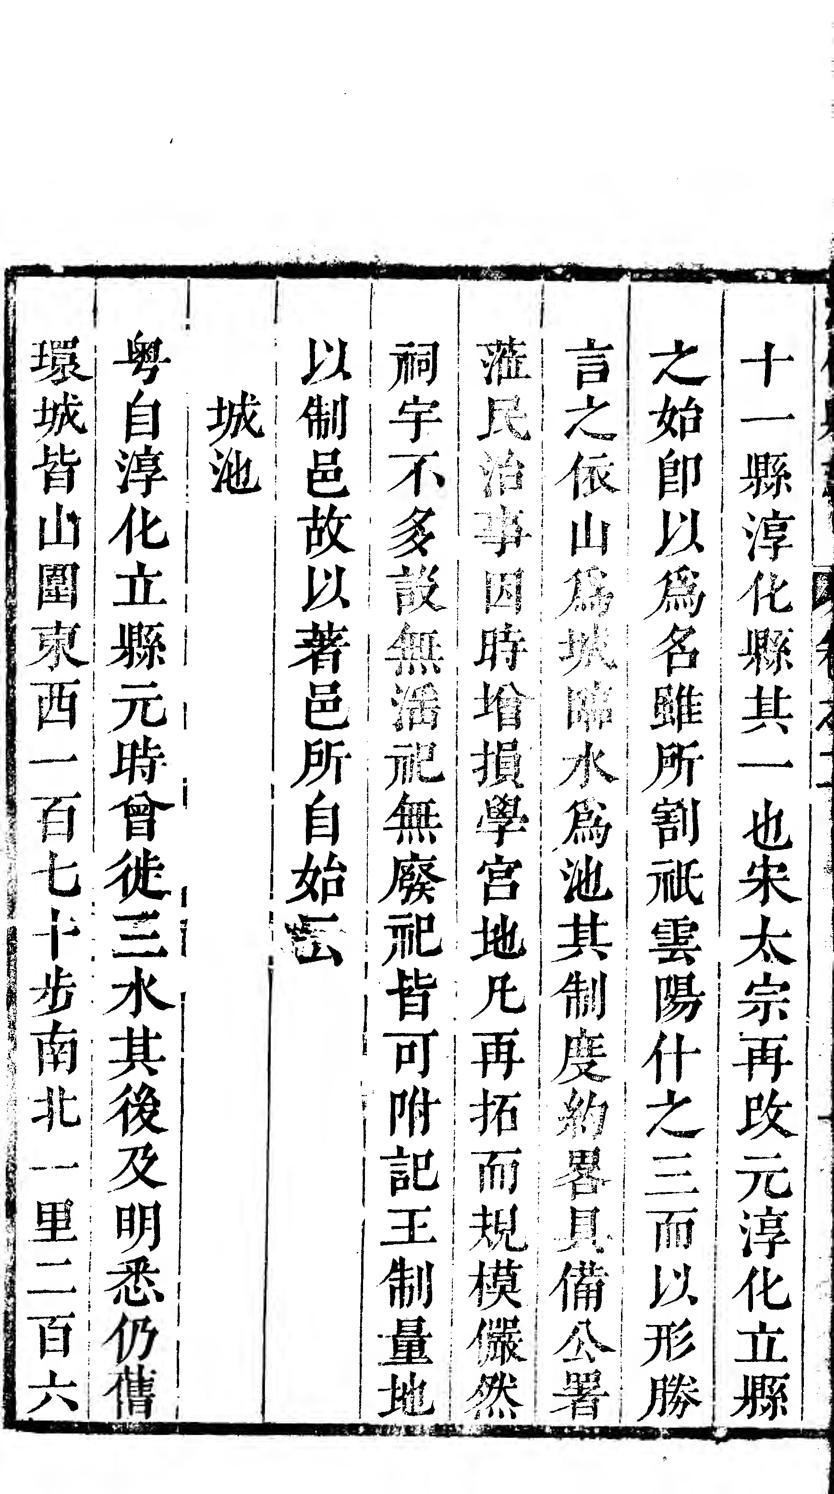 十一縣淳化縣其一也宋太宗再改元淳化立縣
之始卽以爲名雖所割祇雲陽什之三而以形勝
言之依山爲城臨水爲池其制度約畧具備公署
蒞民治事因時增損學宮地凡再拓而規模儼然
祠宇不多設無淫祀無廢祀皆可附記王制量地
以制邑故以著邑所自始云
城池
粵自淳化立縣元時曾徙三水其後及明悉仍舊
環城皆山圍東西一百七十步南北一里二百六